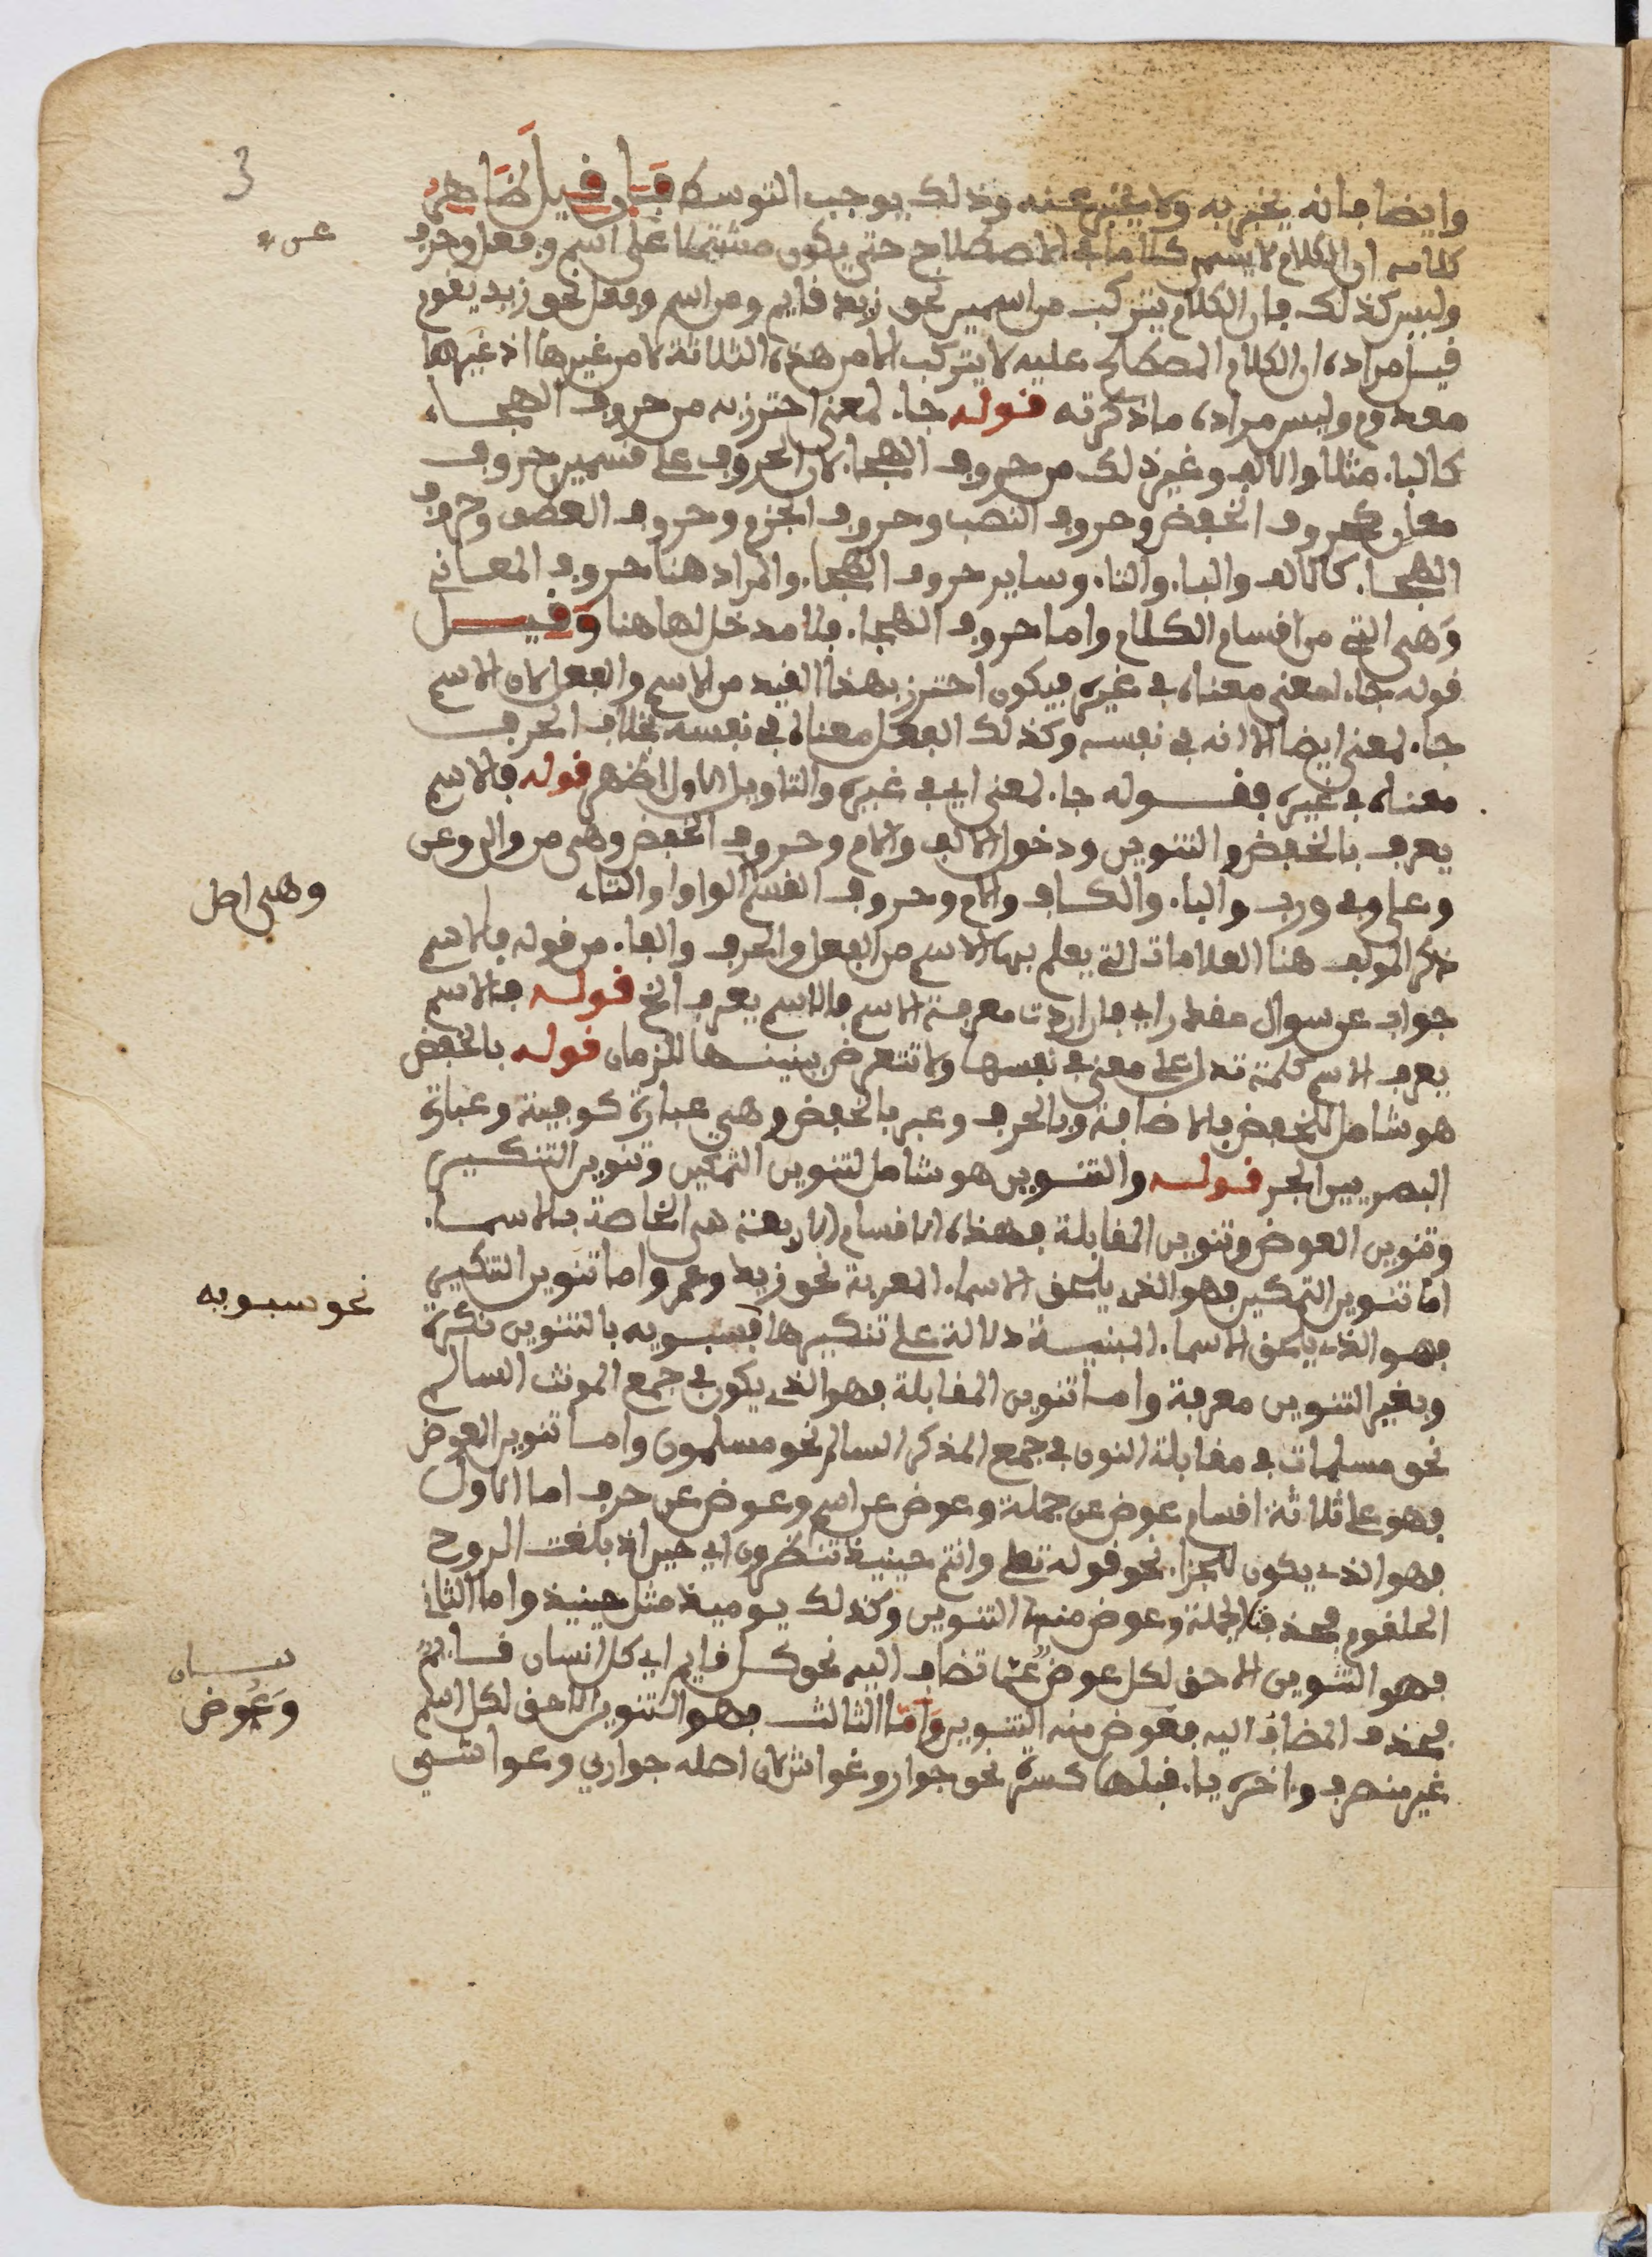 3
وايضا فانه يخبر به ولا يخبر عنه وذلك يوجب التوسط فان قيل ظاهر
كلامه ان الكلام لا يسمى كلاما في الاصطلاح حتى يكون مشتملا على اسم وفعل وحرف
وليس كذلك فان الكلام يتركب من اسمين نحو زيد قايم ومن اسم وفعل نحو زيد يقوم
قيل مراده ان الكلام المصطلح عليه لا يتركب الا من هذه الثلاثة لا من غيرها اذ غيرها
معدوم وليس مراده ما ذكرته قوله جاء لمعنى احترز به من حروف الهجاء
كالباء مثلا والالف وغير ذلك من حروف الهجاء لان الحروف على قسمين حروف
معان كحروف الخفض وحروف النصب وحروف الجزم وحروف العطف وحروف
الهجاء كالالف والباء والتاء وساير حروف الهجاء والمراد هنا حروف المعاني
وهي التي من اقسام الكلام واما حروف الهجاء فلا مدخل لها هنا وقيل
قوله جاء لمعنى معناه في غيره فيكون احترز بهذا القيد من الاسم والفعل لان الاسم
جاء لمعنى ايضا الا انه في نفسه وكذلك الفعل معناه في نفسه بخلاف الحرف
معناه في غيره فقوله جاء لمعنى اي في غيره والتاويل الاول اظهر قوله فالاسم
يعرف بالخفض والتنوين ودخول الالف والام وحروف الخفض وهي من والى وعن
وعلى وفي ورب والباء والكاف والام وحروف القسم الواو والتاء
وهي اصل
ذكر المولف هنا العلامات التي يعلم بها الاسم من الفعل والحرف والفاء من قوله فالاسم
جواب عن سوال مقدر اي فان اردت معرفة الاسم فالاسم يعرف الخ قوله فالاسم
يعرف الاسم كلمة تدل على معنى في نفسها ولا تتعرض ببنيتها للزمان قوله بالخفض
هو شامل للخفض بالاضافة وبالحرف وعبر بالخفض وهي عبارة كوفية وعبارة
البصريين الجر قوله والتنوين هو شامل لتنوين التمكين وتنوين التنكير
وتنوين العوض وتنوين المقابلة فهذه الاقسام الاربعة هي الخاصة بالاسماء
اما تنوين التمكين فهو الذي يلحق الاسماء المعربة نحو زيد وعمرو واما تنوين التنكير
نحو سبويه
فهو الذي يلحق الاسماء المبنية دلالة على تنكيرها كسبويه بالتنوين نكرة
وبغير التنوين معرفة واما تنوين المقابلة فهو الذي يكون في جمع المونث السالم
نحو مسلمات في مقابلة النون في جمع المذكر السالم نحو مسلمون واما تنوين العوض
فهو على ثلاثة اقسام عوض عن جملة وعوض عن اسم وعوض عن حرف اما الاول
فهو الذي يكون للجزاء نحو قوله تعلى وانتم حينيذ تنظرون اي حين اذ بلغت الروح
الحلقوم فحذفت الجملة وعوض منها التنوين وكذلك يوميذ مثل حينيذ واما الثاني
فهو التنوين الاحق لكل عوض عما تضاف اليه نحو كل قايم اي كل انسان قايم
فحذف المضاف اليه فعوض منه التنوين واما الثالث فهو التنوين الاحق لكل اسم
بيان
وعوض
غير منصرف واخره ياء قبلها كسرة نحو جوار وغواش لان اصله جواري وغواشي